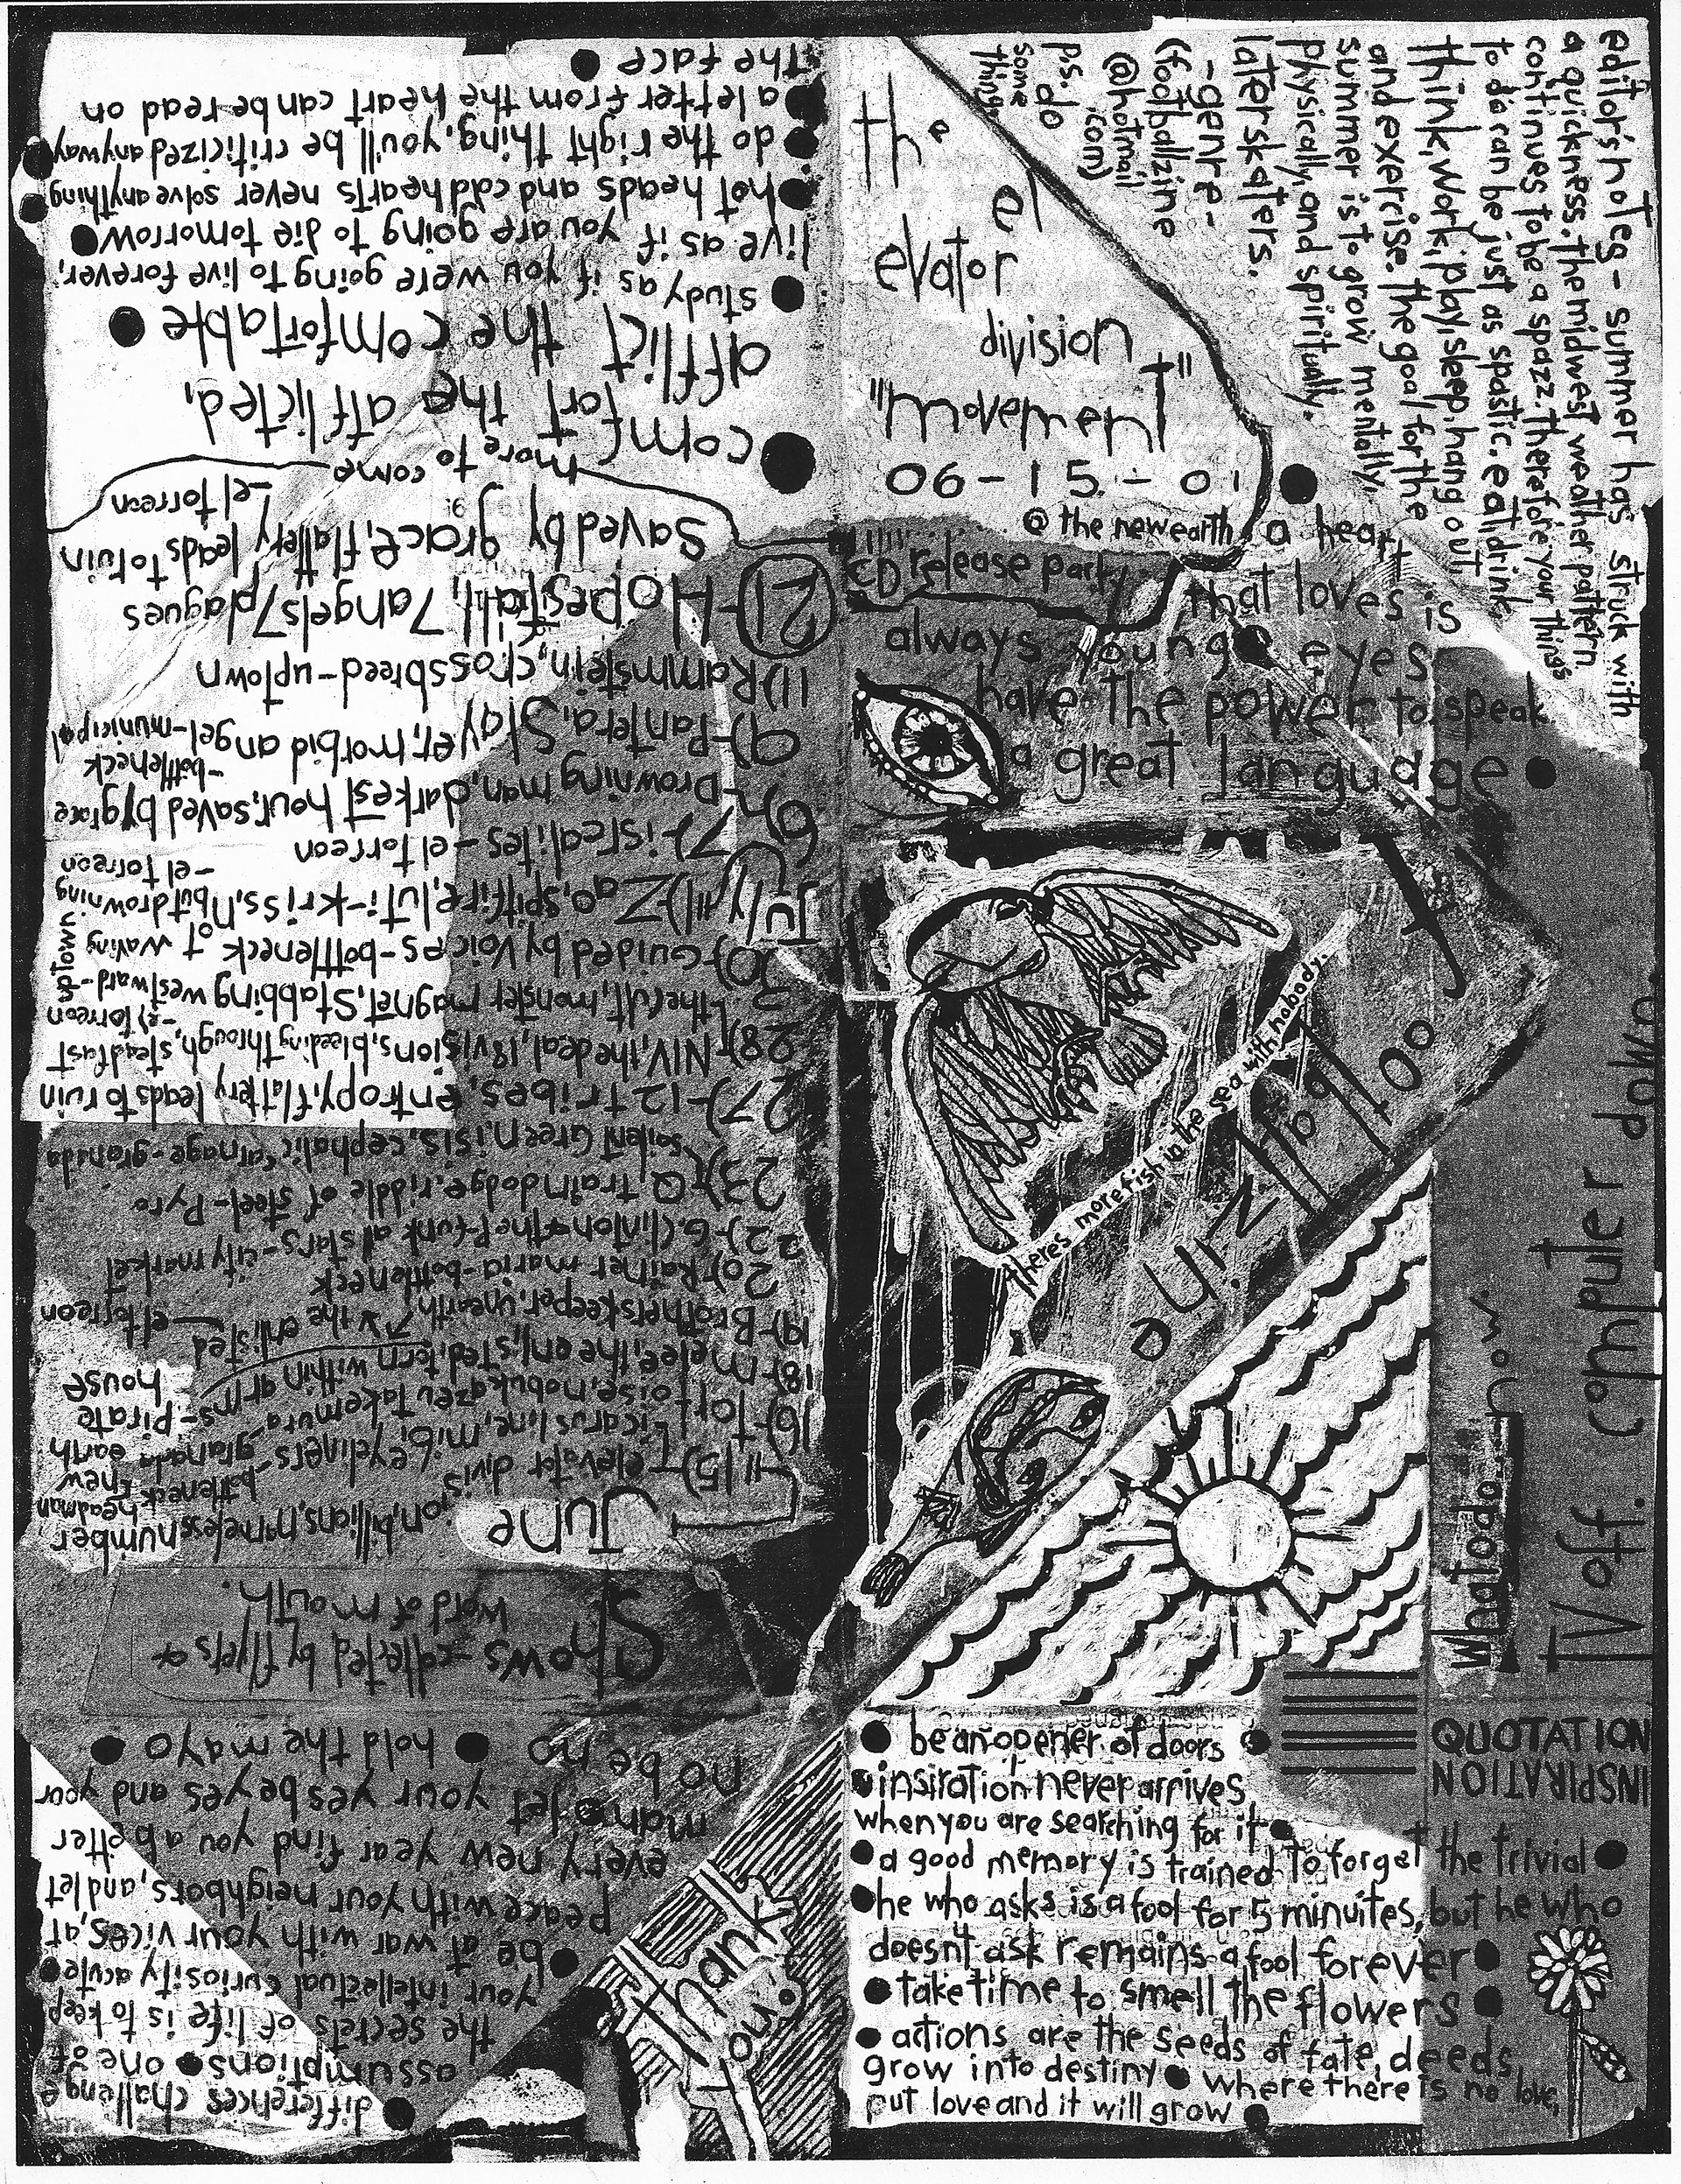 editor's notes - summer has struck with
a quickness. the midwest weather pattern
continues to be a spazz therefore your things
to do can be just as spastic. eat, drink
think, work, play, sleep, hang out
and exercise. the goal for the
summer is to grow mentally,
physically, and spiritually.
laterskaters.
-genre-
(footballzine
@hotmail
.com)
p.s. do
some
thing
the
el
evator
division
"movement"
06-15-01
@ the new earth
CD release party
a heart
that loves is
always young ● eyes
have the power to speak
a great language ●
football
zine
theres more fish in the sea with nobody.
What to do now.
TV off. computer down.
QUOTATION
INSPIRATION
● be an opener of doors ●
insiration never arrives
when you are searching for it ●
● a good memory is trained to forget the trivial ●
● he who asks is a fool for 5 minuites, but he who
doesnt ask remains a fool forever ●
● take time to smell the flowers ●
● actions are the seeds of fate, deeds
grow into destiny ● where there is no love,
put love and it will grow ●
thank
you.
● differences challenge
assumptions ● one of
the secrets of life is to keep
your intellectual curiosity acute ●
● be at war with your vices, at
peace with your neighbors, and let
every new year find you a better
man ● let your yes be yes and your
no be no ● hold the mayo ●
Shows - collected by flyers &
word of mouth.
June
15) elevator division, billions, nameless number headman
- new earth
icarus line, m.i.b., eyeliners - granada
oise, nobukazu takemura - bottleneck
within arms - pirate house
18) melee, the enlisted, tern
19) Brothers keeper, unearth, the enlisted - el torreon
20) Rainer maria - bottleneck
22) G. Clinton & the P-funk all stars - city market
23) Q, train dodge, riddle of steel - Pyro
soilent Green, isis, cephalic carnage - granada
27) - 12 tribes, entropy, flattery leads to ruin
28) NIV, the deal, 18 visions, bleeding through, steadfast
- el torreon
the cult, monster magnet, Stabbing westward - uptown
30) Guided by Voices - bottleneck
July 11) Zao, spitfire, luti-kriss, not waving but drowning
- el torreon
7) isrealites - el torreon
- Drowning man, darkest hour, saved by grace
- bottleneck
9) - Pantera, Slayer, morbid angel - municipal
11) Rammstein, crossbreed - uptown
21 - Hopesfall, 7 angels 7 plagues
saved by grace, flattery leads to ruin
- el torreon
more to come
● comfort the afflicted,
afflict the comfortable ●
● study as if you were going to live forever,
live as if you are going to die tomorrow ●
● hot heads and cold hearts never solve anything
● do the right thing, you'll be criticized anyway
● a letter from the heart can be read on
the face ●